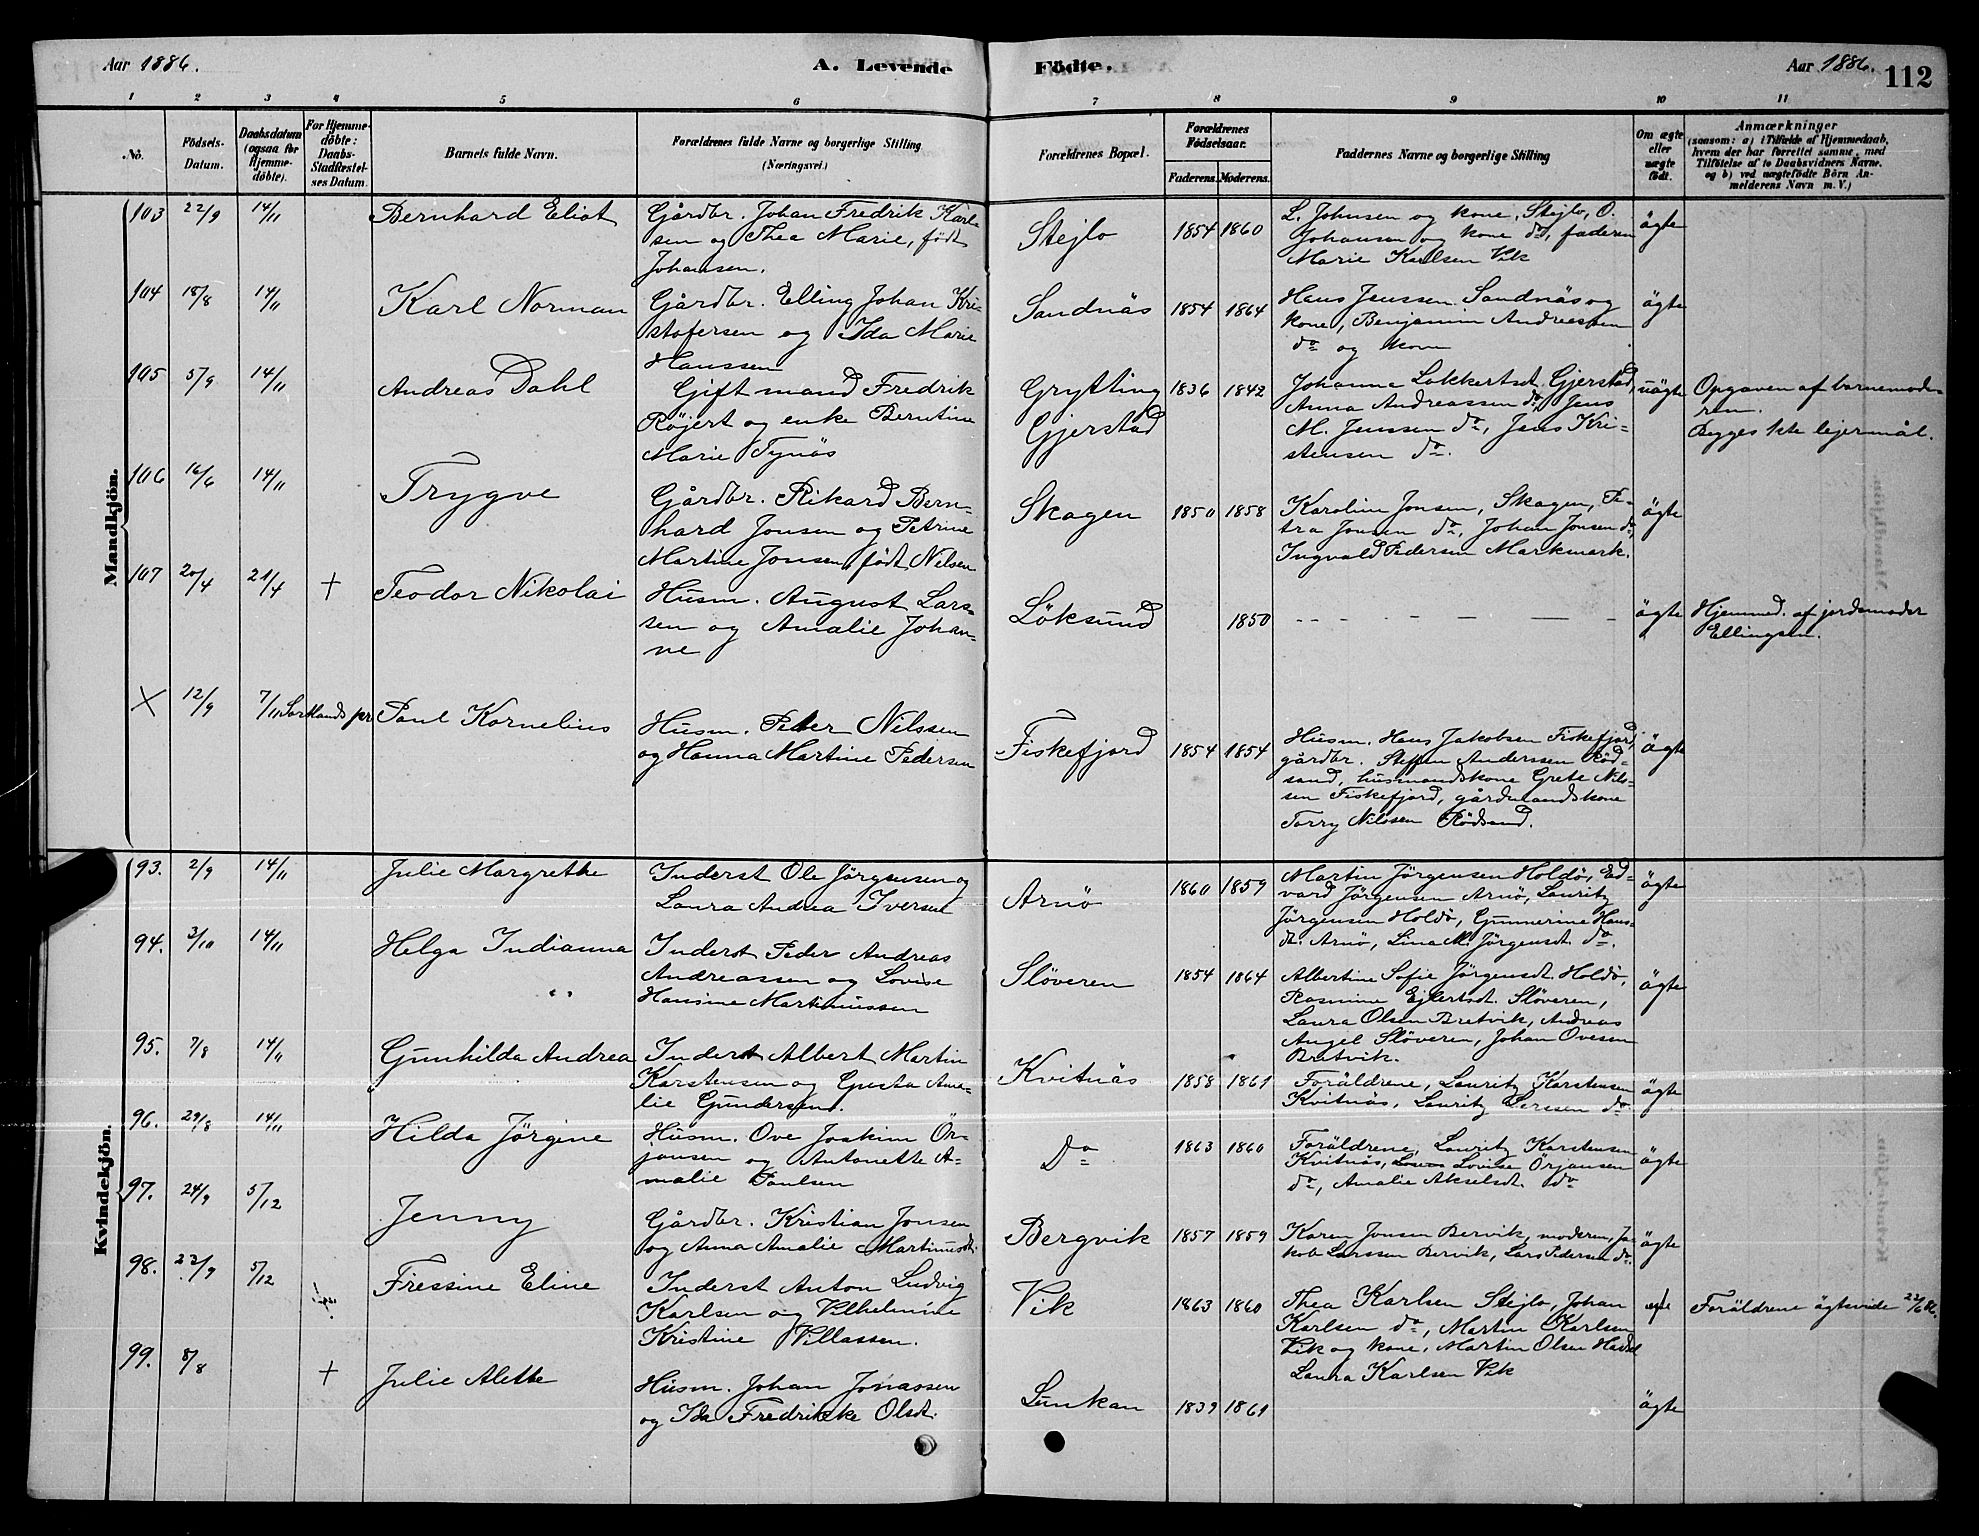 Aar 1886.
A. Levende
Födte.
Aar 1886.
112
1 2 3 4 5 6 7 8 9 10 11
No.
Födsels-
Datum.
Daabsdatum
(ogsaa for
Hjemme-
döbte).
For Hjemme-
döbte:
Daabs-
Stadfæstel-
ses Datum.
Barnets fulde Navn.
Forældrenes fulde Navne og borgerlige Stilling
(Næringsvei).
Forældrenes Bopæl.
Forældrenes
Födselsaar.
Faderens. Moderens.
Faddernes Navne og borgerlige Stilling
Om ægte
eller
uægte
födt.
Anmærkninger
(saasom: a) i Tilfælde af Hjemmedaab,
hvem der har forrettet samme, med
Tilföielse af to Daabsvidners Navne,
og b) ved uægtefödte Börn An-
melderens Navn m. V.)
Mandkjön.
103 22/9 14/11 Bernhard Eliot
Gårdbr. Johan Fredrik Karl-
sen og Thea Marie, født
Johansen.
Stejlo 1854 1860
L. Johnsen og kone, Stejlo, O.
Johansen og kone do, faderen
Marie Karlsen Vik
ägte
104 18/8 14/11 Karl Norman
Gårdbr. Elling Johan Kri-
stofersen og Ida Marie
Hanssen
Sandnäs 1854 1864
Hans Jenssen Sandnäs og
kone, Benjamin Andreassen
do og kone
ägte
105 5/9 14/11 Andreas Dahl
Gift mand Fredrik
Röjert og enke Berntine
Marie Tynös
Grytting
Gjerstad
1836 1842
Johanna Lokkertsdt. Gjerstad,
Anna Andreassen do, Jens
M. Jenssen do, Jens Kri-
stensen do.
uägte
Opgaven af barnemode-
ren.
Begges 1ste lejermål.
106 16/6 14/11 Trygve
Gårdbr. Rikard Bern-
hard Jonsen og Petrine
Martine Jonsen, født Nilsen
Skagen 1850 1858
Karoline Jonsen, Skagen, Pe-
tra Jonsen do, Johan Jonsen do,
Ingvald Pedersen Markmark.
ägte
107 20/4 21/4 + Teodor Nikolai
Husm. August Lars-
sen og Amalie Johan-
ne
Löksund 1850
ägte
Hjemmed. af jordemoder
Ellingsen.
X 12/9 7/11 Sortlands pr Paul Kornelius
Husm. Peter Nilssen
og Hanna Martine Pedersen
Fiskefjord 1854 1854
Husm. Hans Jakobsen Fiskefjord,
gårdbr. Steffen Anderssen Röd-
sand, husmandskone Grete Nils-
sen Fiskefjord, gårdmandskone
Torry Nilssen Rödsand.
ägte
Kvindekjön.
93. 2/9 14/11 Julie Margrethe
Inderst Ole Jörgensen og
Laura Andrea Iversen
Arnö 1860 1859
Martin Jörgensen Holdö, Ed-
vard Jörgensen Arnö, Lauritz
Jörgensen Holdö, Gunnerine Hans-
dt. Arnö, Lina M. Jörgensdt. do.
ägte
94. 3/10 14/11 Helga Indianna
Inderst Peder Andreas
Andreassen og Lovise
Hansine Martinussen
Slöveren 1854 1864
Albertine Sofie Jörgensdt. Holdö,
Rasmine Ejlertsdt. Slöveren,
Laura Olsen Bretvik, Andreas
Angel Slöveren, Johan Ovesen
Bretvik.
ägte
95. 7/8 14/11 Gunhilda Andrea
Inderst Albert Martin
Karstensen og Gusta Ama-
lie Gundersen.
Kvitnäs 1858 1861
Foräldrene, Lauritz Karstensen
Kvitnäs, Lauritz Larssen do
ägte
96. 29/8 14/11 Hilda Jörgine
Husm. Ove Joakim Ör-
jansen og Antonette A-
malie Paulsen
Do 1863 1860
Foräldrene, Lauritz Karstensen
Kvitnäs, Lovise Örjansen
do, Amalie Akselsdt. do
ägte
97. 24/9 5/12 Jenny
Gårdbr. Kristian Jonsen
og Anna Amalie Martinusdt.
Bergvik 1857 1859
Karen Jonsen Bervik, moderen, Ja-
kob Larssen Bervik, Lars Pedersen do.
ägte
98. 23/9 5/12 Fressine Eline
Inderst Anton Ludvig
Karlsen og Vilhelmine
Kristine Villassen.
Vik 1863 1860
Thea Karlsen Stejlo, Johan
Karlsen do, Martin Karlsen
Vik og kone, Martin Olsen Hadsel
Laura Karlsen Vik
Foräldrene ägteviede 22/6 86.
99. 8/8 + Julie Alette
Husm. Johan Jonassen
og Ida Fredrikke Olsdt.
Lunkan 1839 1861
ägte